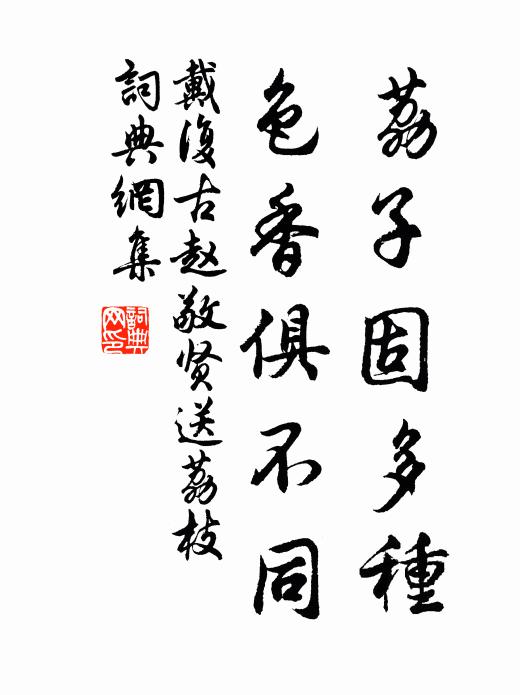 荔子固多種
色香俱不同
戴復古赵敬贤送荔枝
詞典網集
詞典网印